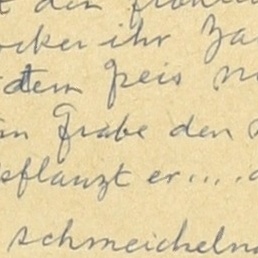 den fröhlich
ocker ihr Za
dem Greis n
m Grabe den
pflanzt er....
schmeicheln